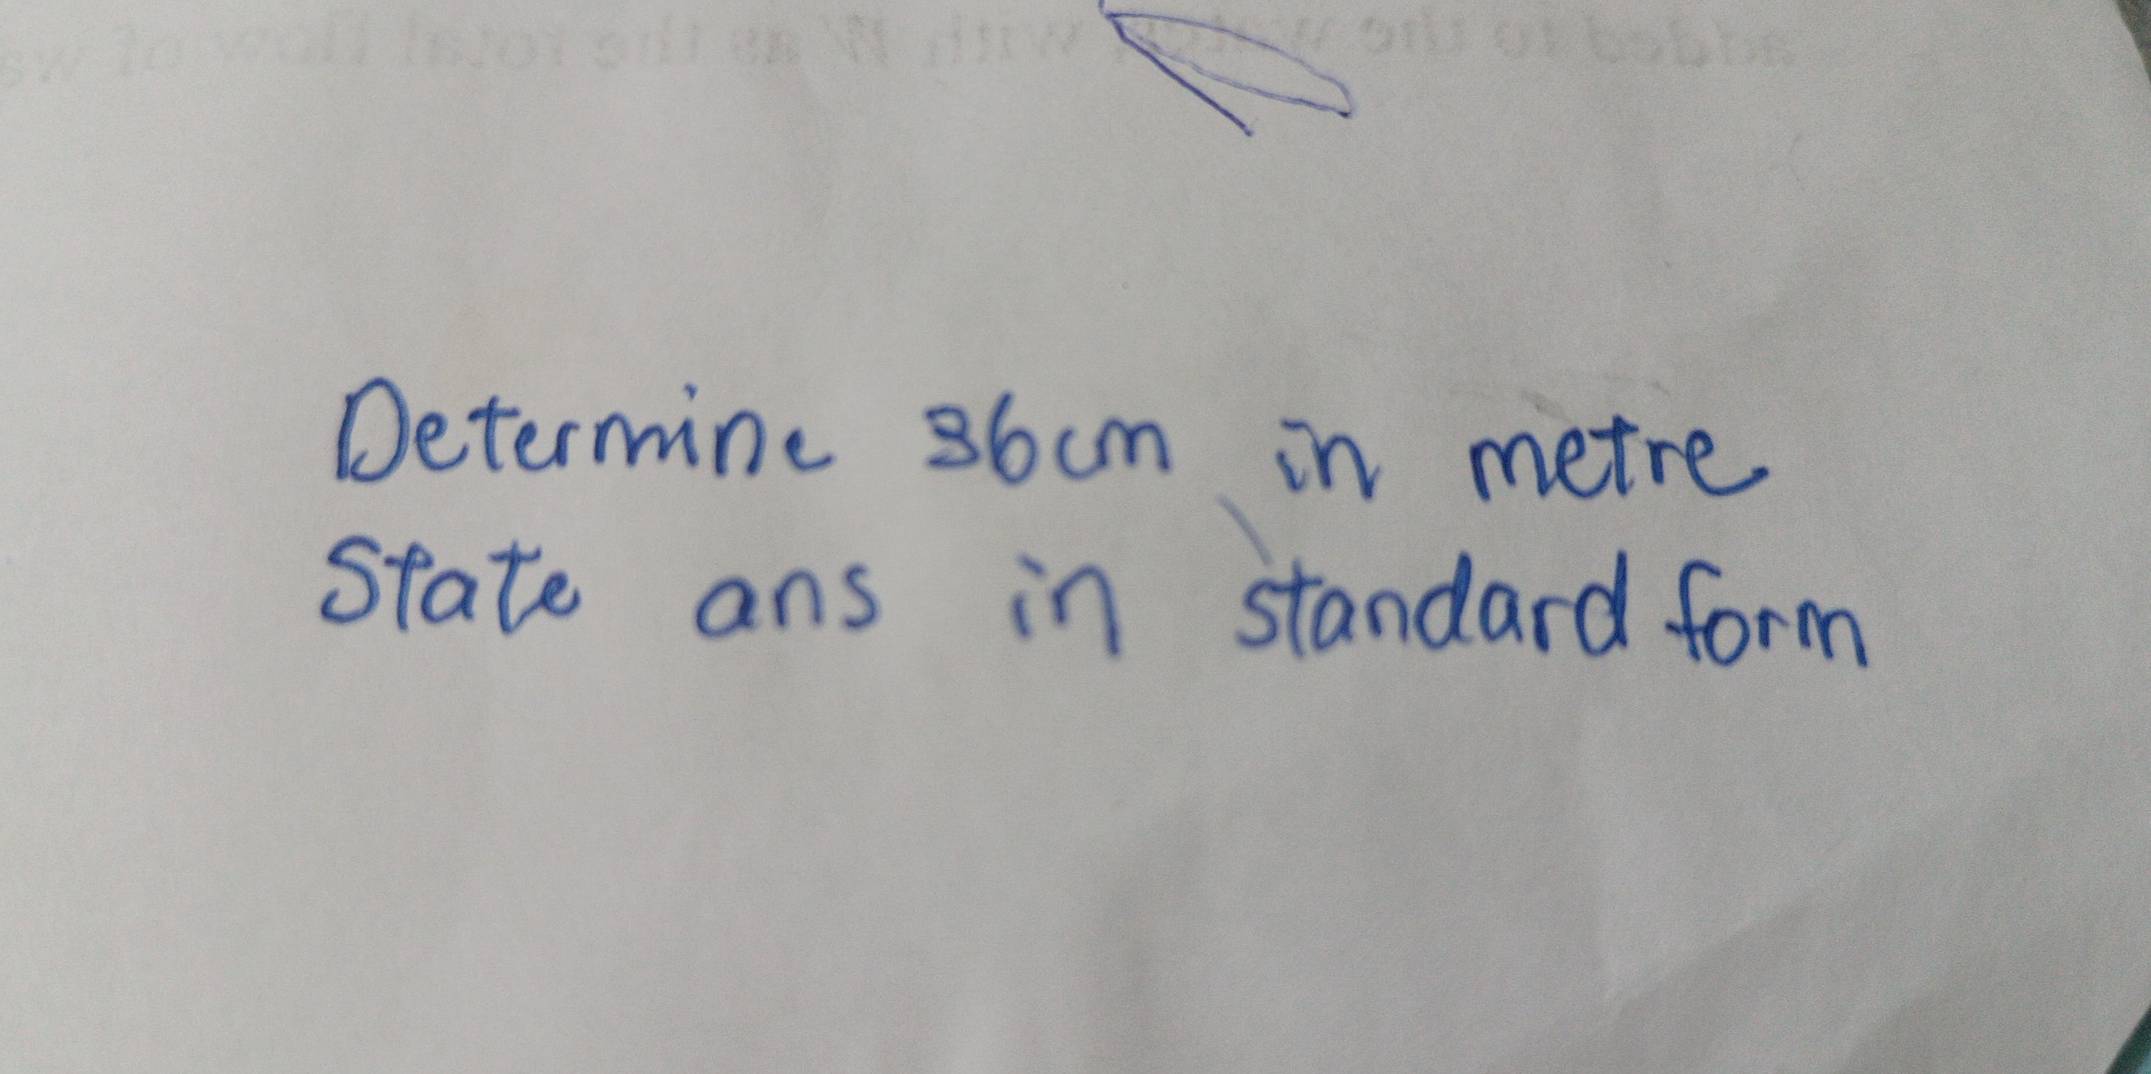 Determine 36cm in metre
State ans in standard form